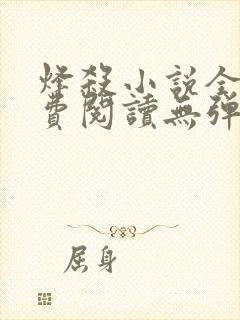 烽殺小說全
費閱讀無彈
屈身